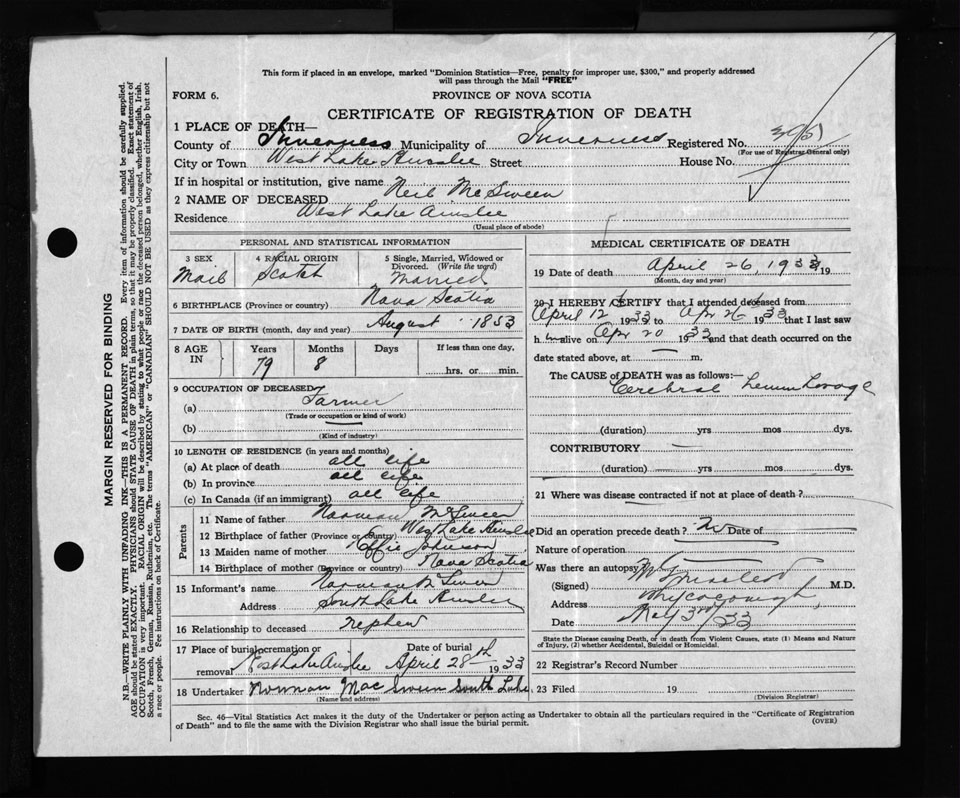 This form if placed in an envelope, marked "Dominion Statistics—Free, penalty for improper use, $300," and properly addressed
will pass through the Mail "FREE"
FORM 6. PROVINCE OF NOVA SCOTIA
CERTIFICATE OF REGISTRATION OF DEATH
1 PLACE OF DEATH—
County of Inverness Municipality of Inverness Registered No.
(For use of Registrar General only)
City or Town West Lake Ainslie Street House No.
If in hospital or institution, give name
2 NAME OF DECEASED Neil McSween
Residence West Lake Ainslie
(Usual place of abode)
PERSONAL AND STATISTICAL INFORMATION
3 SEX 4 RACIAL ORIGIN 5 Single, Married, Widowed or
Divorced. (Write the word)
Male Scotch Married
6 BIRTHPLACE (Province or country) Nova Scotia
7 DATE OF BIRTH (month, day and year) August 1853
8 AGE IN Years Months Days If less than one day,
79 8 hrs. or min.
9 OCCUPATION OF DECEASED
(a) Farmer
(Trade or occupation or kind of work)
(b)
(Kind of industry)
10 LENGTH OF RESIDENCE (in years and months)
(a) At place of death all life
(b) In province all life
(c) In Canada (if an immigrant) all life
Parents
11 Name of father Norman McSween
12 Birthplace of father (Province or country) West Lake Ainslie
13 Maiden name of mother Effie Johnson
14 Birthplace of mother (Province or country) Nova Scotia
15 Informant's name Norman McSween
Address South Lake Ainslie
16 Relationship to deceased nephew
17 Place of burial, cremation or Date of burial
removal West Lake Ainslie April 28th 1933
18 Undertaker Norman MacSween South Lake
(Name and address)
MEDICAL CERTIFICATE OF DEATH
19 Date of death April 26, 1933 19
(Month, day and year)
20 I HEREBY CERTIFY that I attended deceased from
April 12 1933 to Apr 26 1933 that I last saw
h im alive on Apr 20 1933 and that death occurred on the
date stated above, at — m.
The CAUSE of DEATH was as follows:—
Cerebral Hemorrhage
(duration) yrs mos dys.
CONTRIBUTORY
(duration) yrs mos dys.
21 Where was disease contracted if not at place of death?
Did an operation precede death? No Date of
Nature of operation
Was there an autopsy?
(Signed) M.D.
Address Whycocomagh
Date May 3rd/33
State the Disease causing Death, or in death from Violent Causes, state (1) Means and Nature
of Injury, (2) whether Accidental, Suicidal or Homicidal.
22 Registrar's Record Number
23 Filed 19
(Division Registrar)
Sec. 46—Vital Statistics Act makes it the duty of the Undertaker or person acting as Undertaker to obtain all the particulars required in the "Certificate of Registration
of Death" and to file the same with the Division Registrar who shall issue the burial permit. (OVER)
MARGIN RESERVED FOR BINDING
N.B.—WRITE PLAINLY WITH UNFADING INK—THIS IS A PERMANENT RECORD. Every item of information should be carefully supplied.
AGE should be stated EXACTLY. PHYSICIANS should STATE CAUSE OF DEATH in plain terms, so that it may be properly classified. Exact statement of
OCCUPATION is very important. RACIAL ORIGIN will be described by stating to what people or race the deceased person belonged, whether English, Irish,
Scotch, French, German, Russian, Ruthenian, etc. The terms "AMERICAN" or "CANADIAN" SHOULD NOT BE USED as they express citizenship but not
a race or people. Fee instructions on back of Certificate.